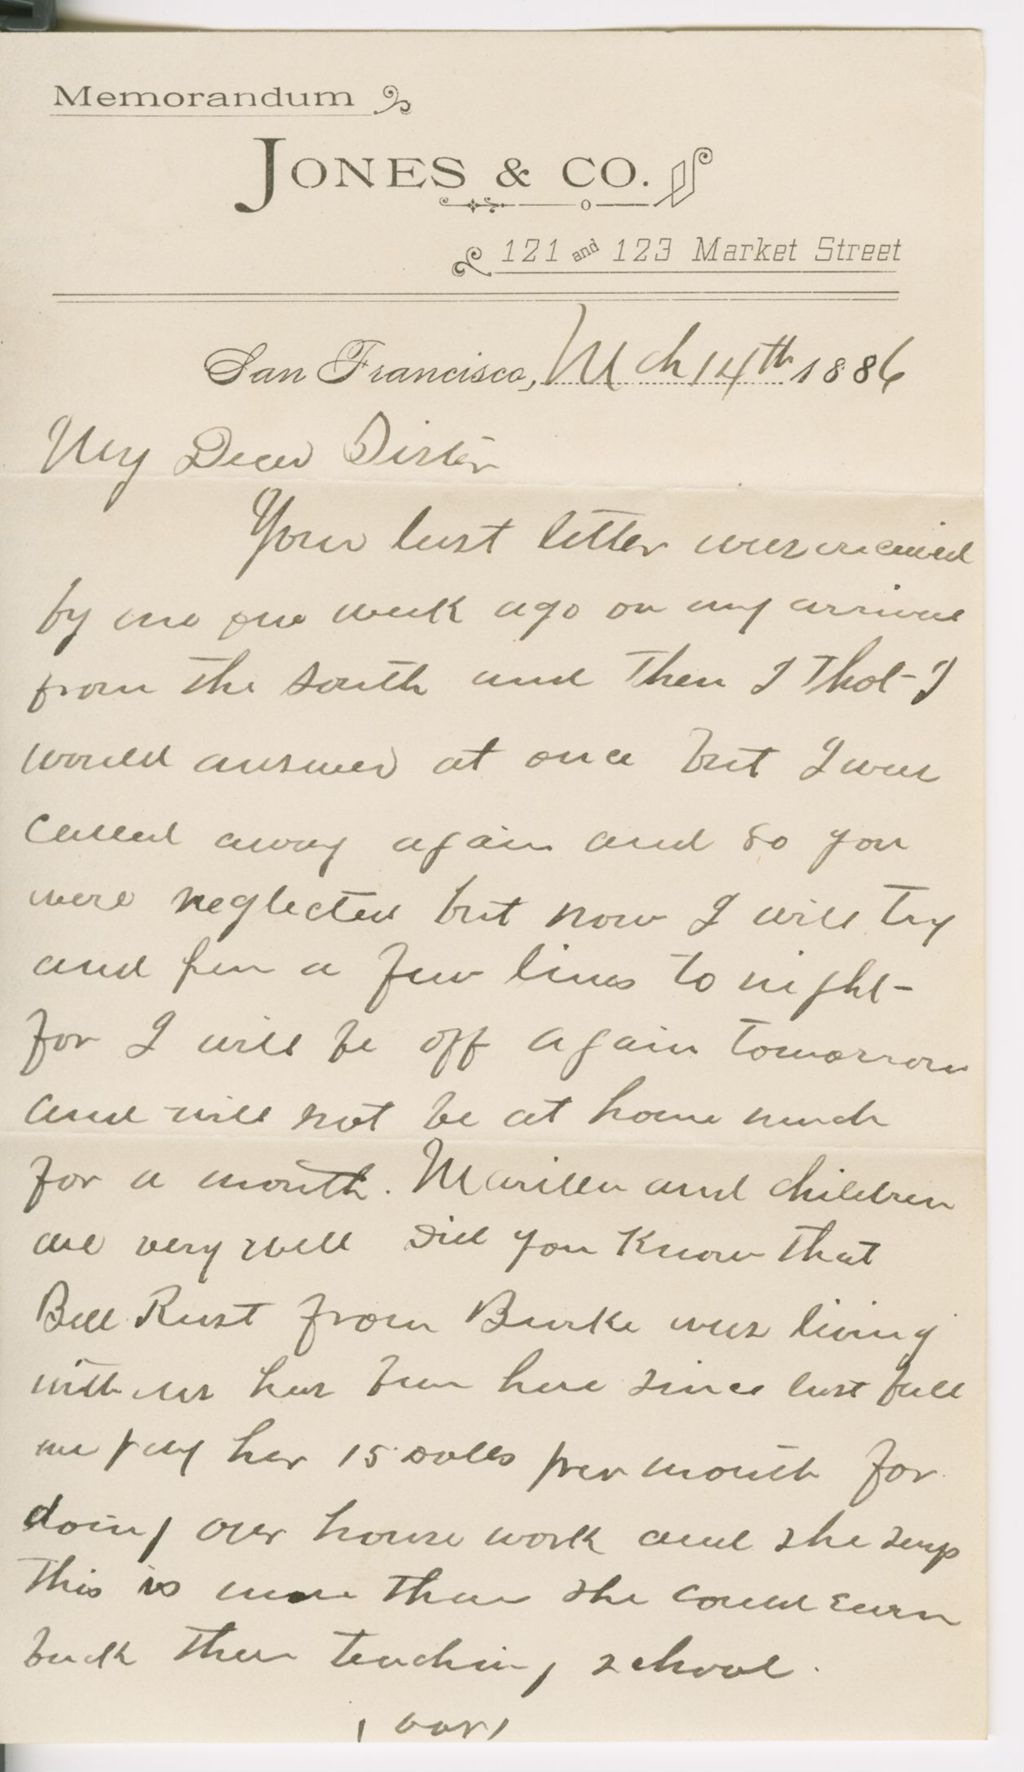 Memorandum
JONES & CO.
121 and 123 Market Street
San Francisco, Mch 14th 1886
My Dear Sister
Your last letter was received
by me one week ago on my arrival
from the south and then I thot I
would answer at once but I was
called away again and so you
were neglected but now I will try
and pen a few lines to night-
for I will be off again tomorrow
and will not be at home much
for a month. Marilla and children
are very well Did you know that
Bell Rust from Burke was living
with us has been here since last fall
we pay her 15 dolls per month for
doing our house work and she says
this is more than she could earn
back there teaching school.
(over)